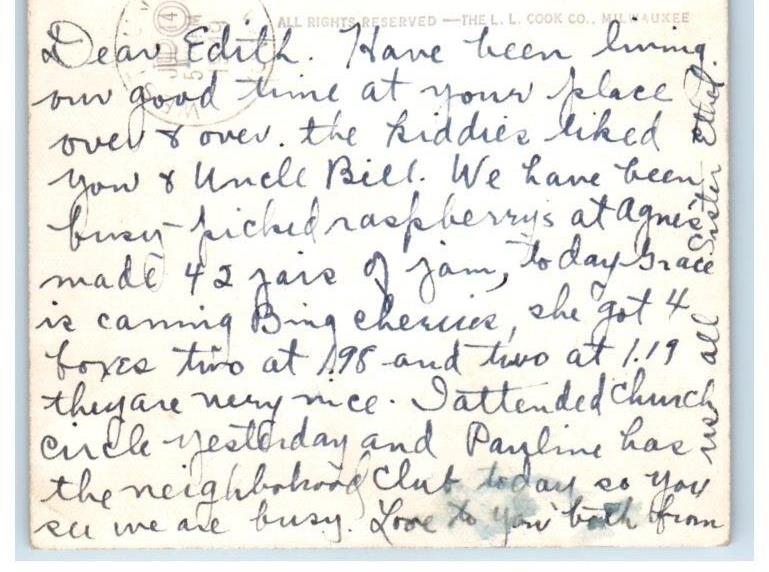 ALL RIGHTS RESERVED —THE L. L. COOK CO., MILWAUKEE
JUL 14
5
Dear Edith. Have been living
our good time at your place
over & over. the kiddies liked
you & Uncle Bill. We have been
busy - picked raspberrys at Agnes'
made 42 jars of jam, to day Grace
is canning Bing cherries, she got 4
boxes two at 1.98 and two at 1.19
they are very nice. I attended church
circle yesterday and Pauline has
the neighborhood Club today so you
see we are busy. Love to you both from
us all Sister Ethel.